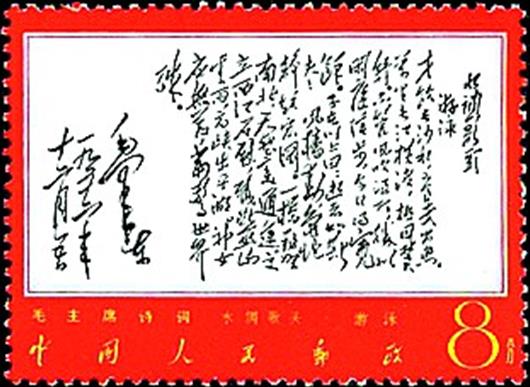 水调歌头
游泳
才饮长沙水又食武昌鱼
万里长江横渡极目楚
天舒不管风吹浪打胜似
闲庭信步今日得宽
馀。子在川上曰逝者如斯
夫 风樯动龟蛇
静起宏图一桥飞架
南北天堑变通途更
立西江石壁截断巫山
云雨高峡出平湖神女
应无恙当惊世界
殊。
毛泽东
一九五六年
十二月五日
毛主席诗词 水调歌头 游泳
中国人民邮政 8分